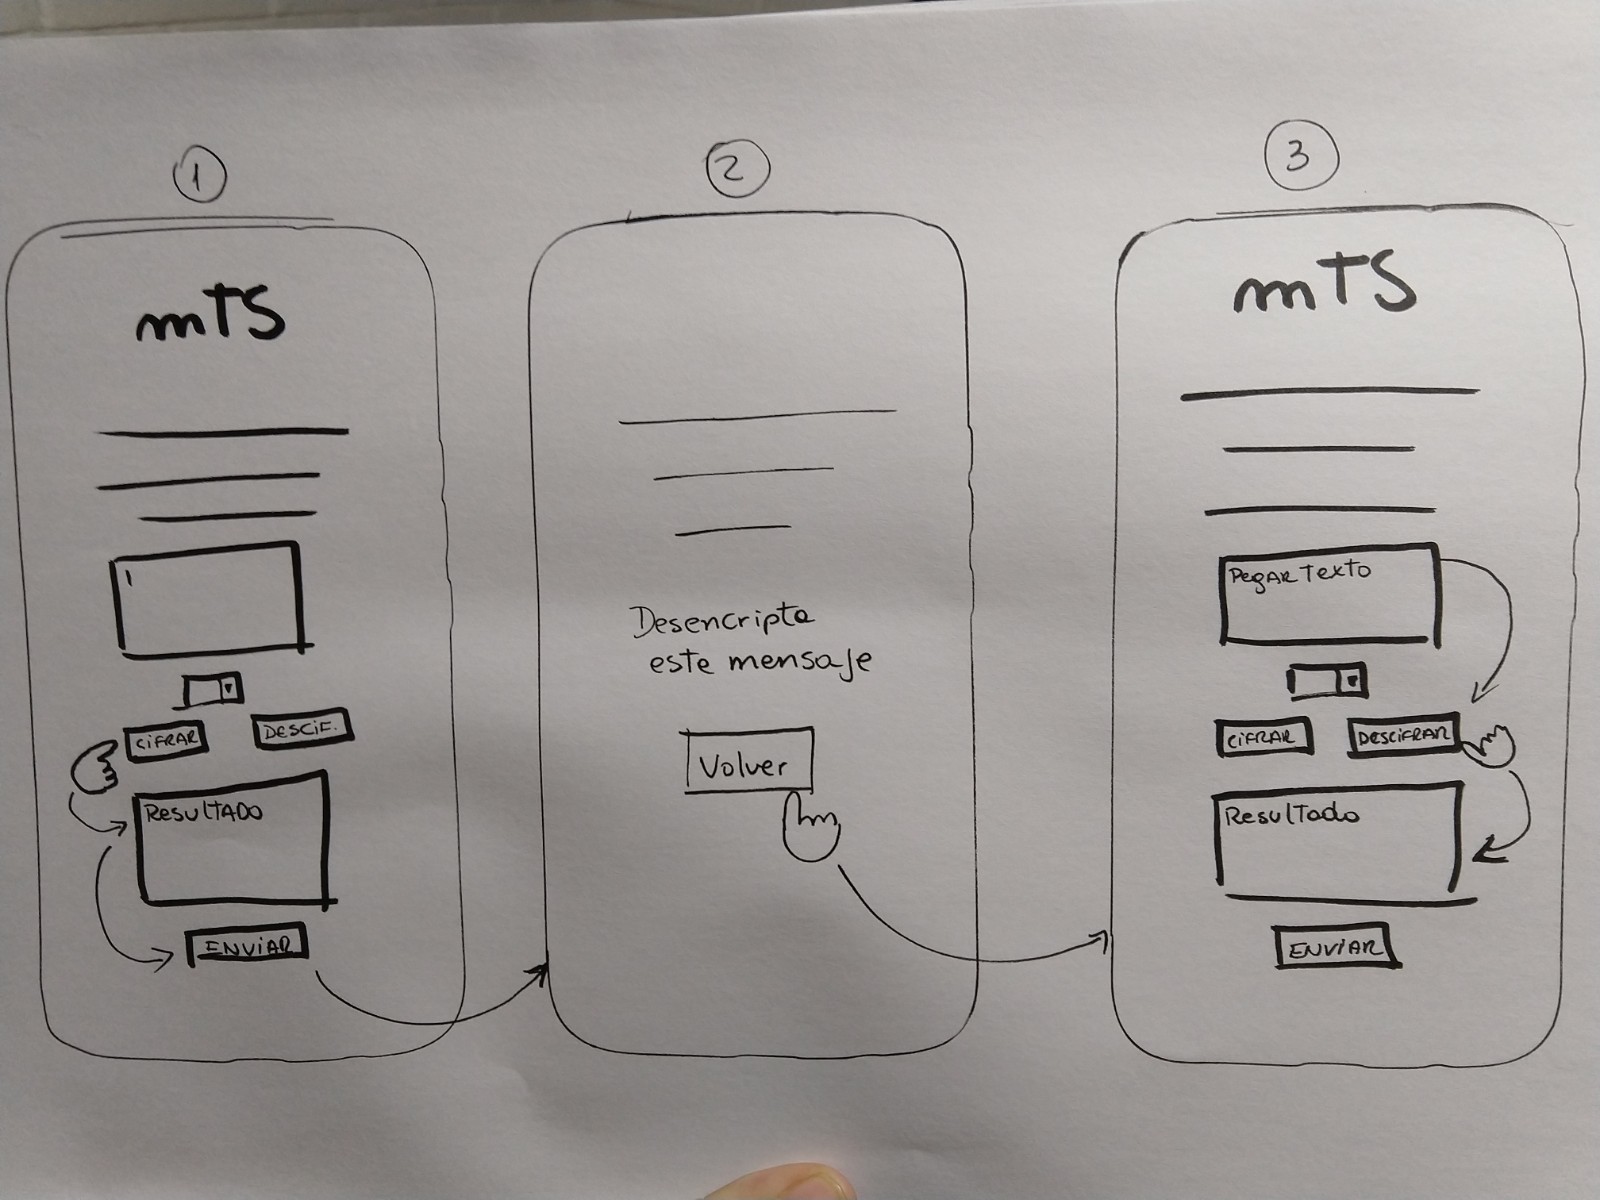 1
2
3
mTS
CiFRAR
DESCiF.
ResulTADO
ENViAR
Desencripta
este mensaje
Volver
mTS
PegAR Texto
CiFRAR
DesciFRAR
ResulTado
ENViAR